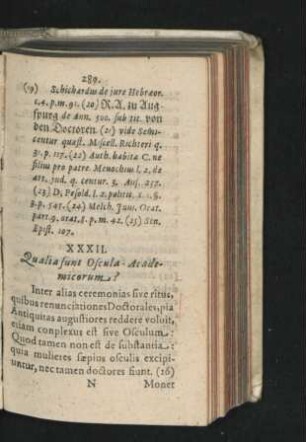 289.
(19) Schichardus de jure Hebræor.
c. 4. p. m. 91. (20) R. A. zu Aug-
spurg de Ann. 500. sub tit. von
den Doctoren. (21) vide Semi-
centur quæst. Miscell. Richteri q.
p. 117. (22) Auth. habita C. ne
filius pro patre. Menochius l. 2. de
arb. jud. q. centur. 3.
(23) D. Besold. l. 2. politic.
p. 545. (24) Melch. Juni. Orat.
part. 9. orat. 1. p. m. 42. (25) Sen.
Epist. 107.
XXXII.
Qualia sunt Oscula Acade-
micorum?
Inter alias ceremonias sive ritus,
quibus renunciationes Doctorales, pia
Antiquitas augustiores reddere voluit,
etiam conplexus est sive Osculum:
Quod tamen non est de substantia:
quia mulieres sæpius osculis excipi-
untur, nec tamen doctores fiunt. (26)
N Monet